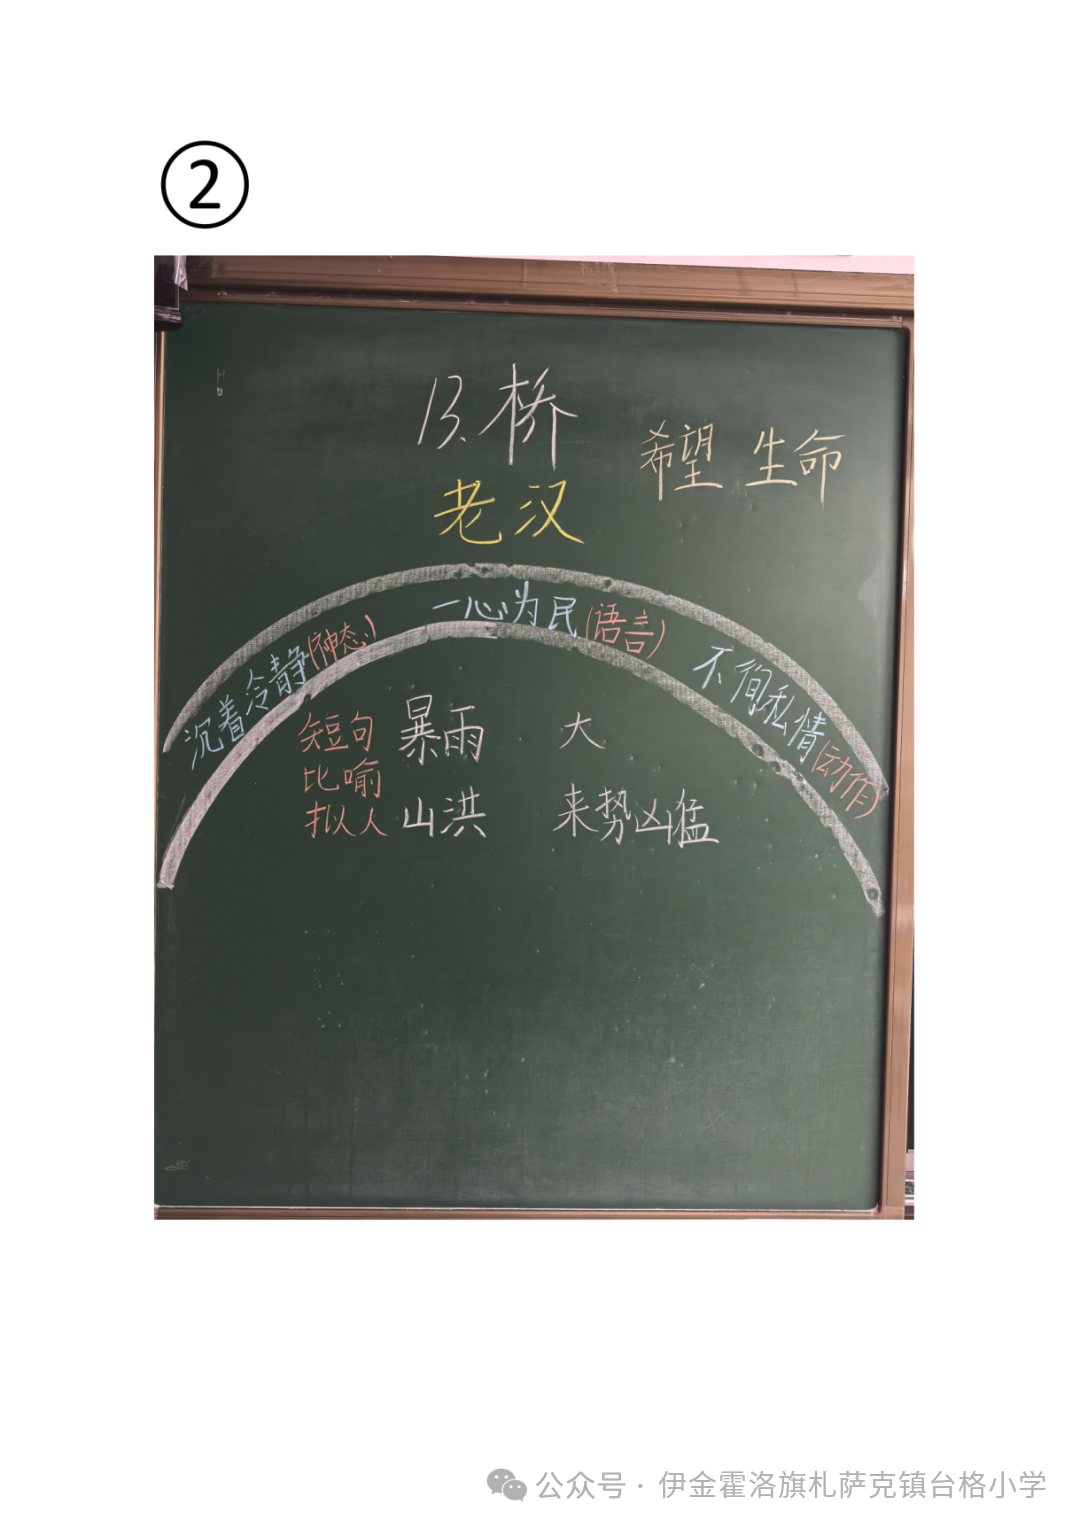 ②
13.桥
希望 生命
老汉
沉着冷静(神态)
一心为民(语言)
不徇私情(动作)
短句 暴雨 大
比喻
拟人 山洪 来势凶猛
公众号 · 伊金霍洛旗札萨克镇台格小学